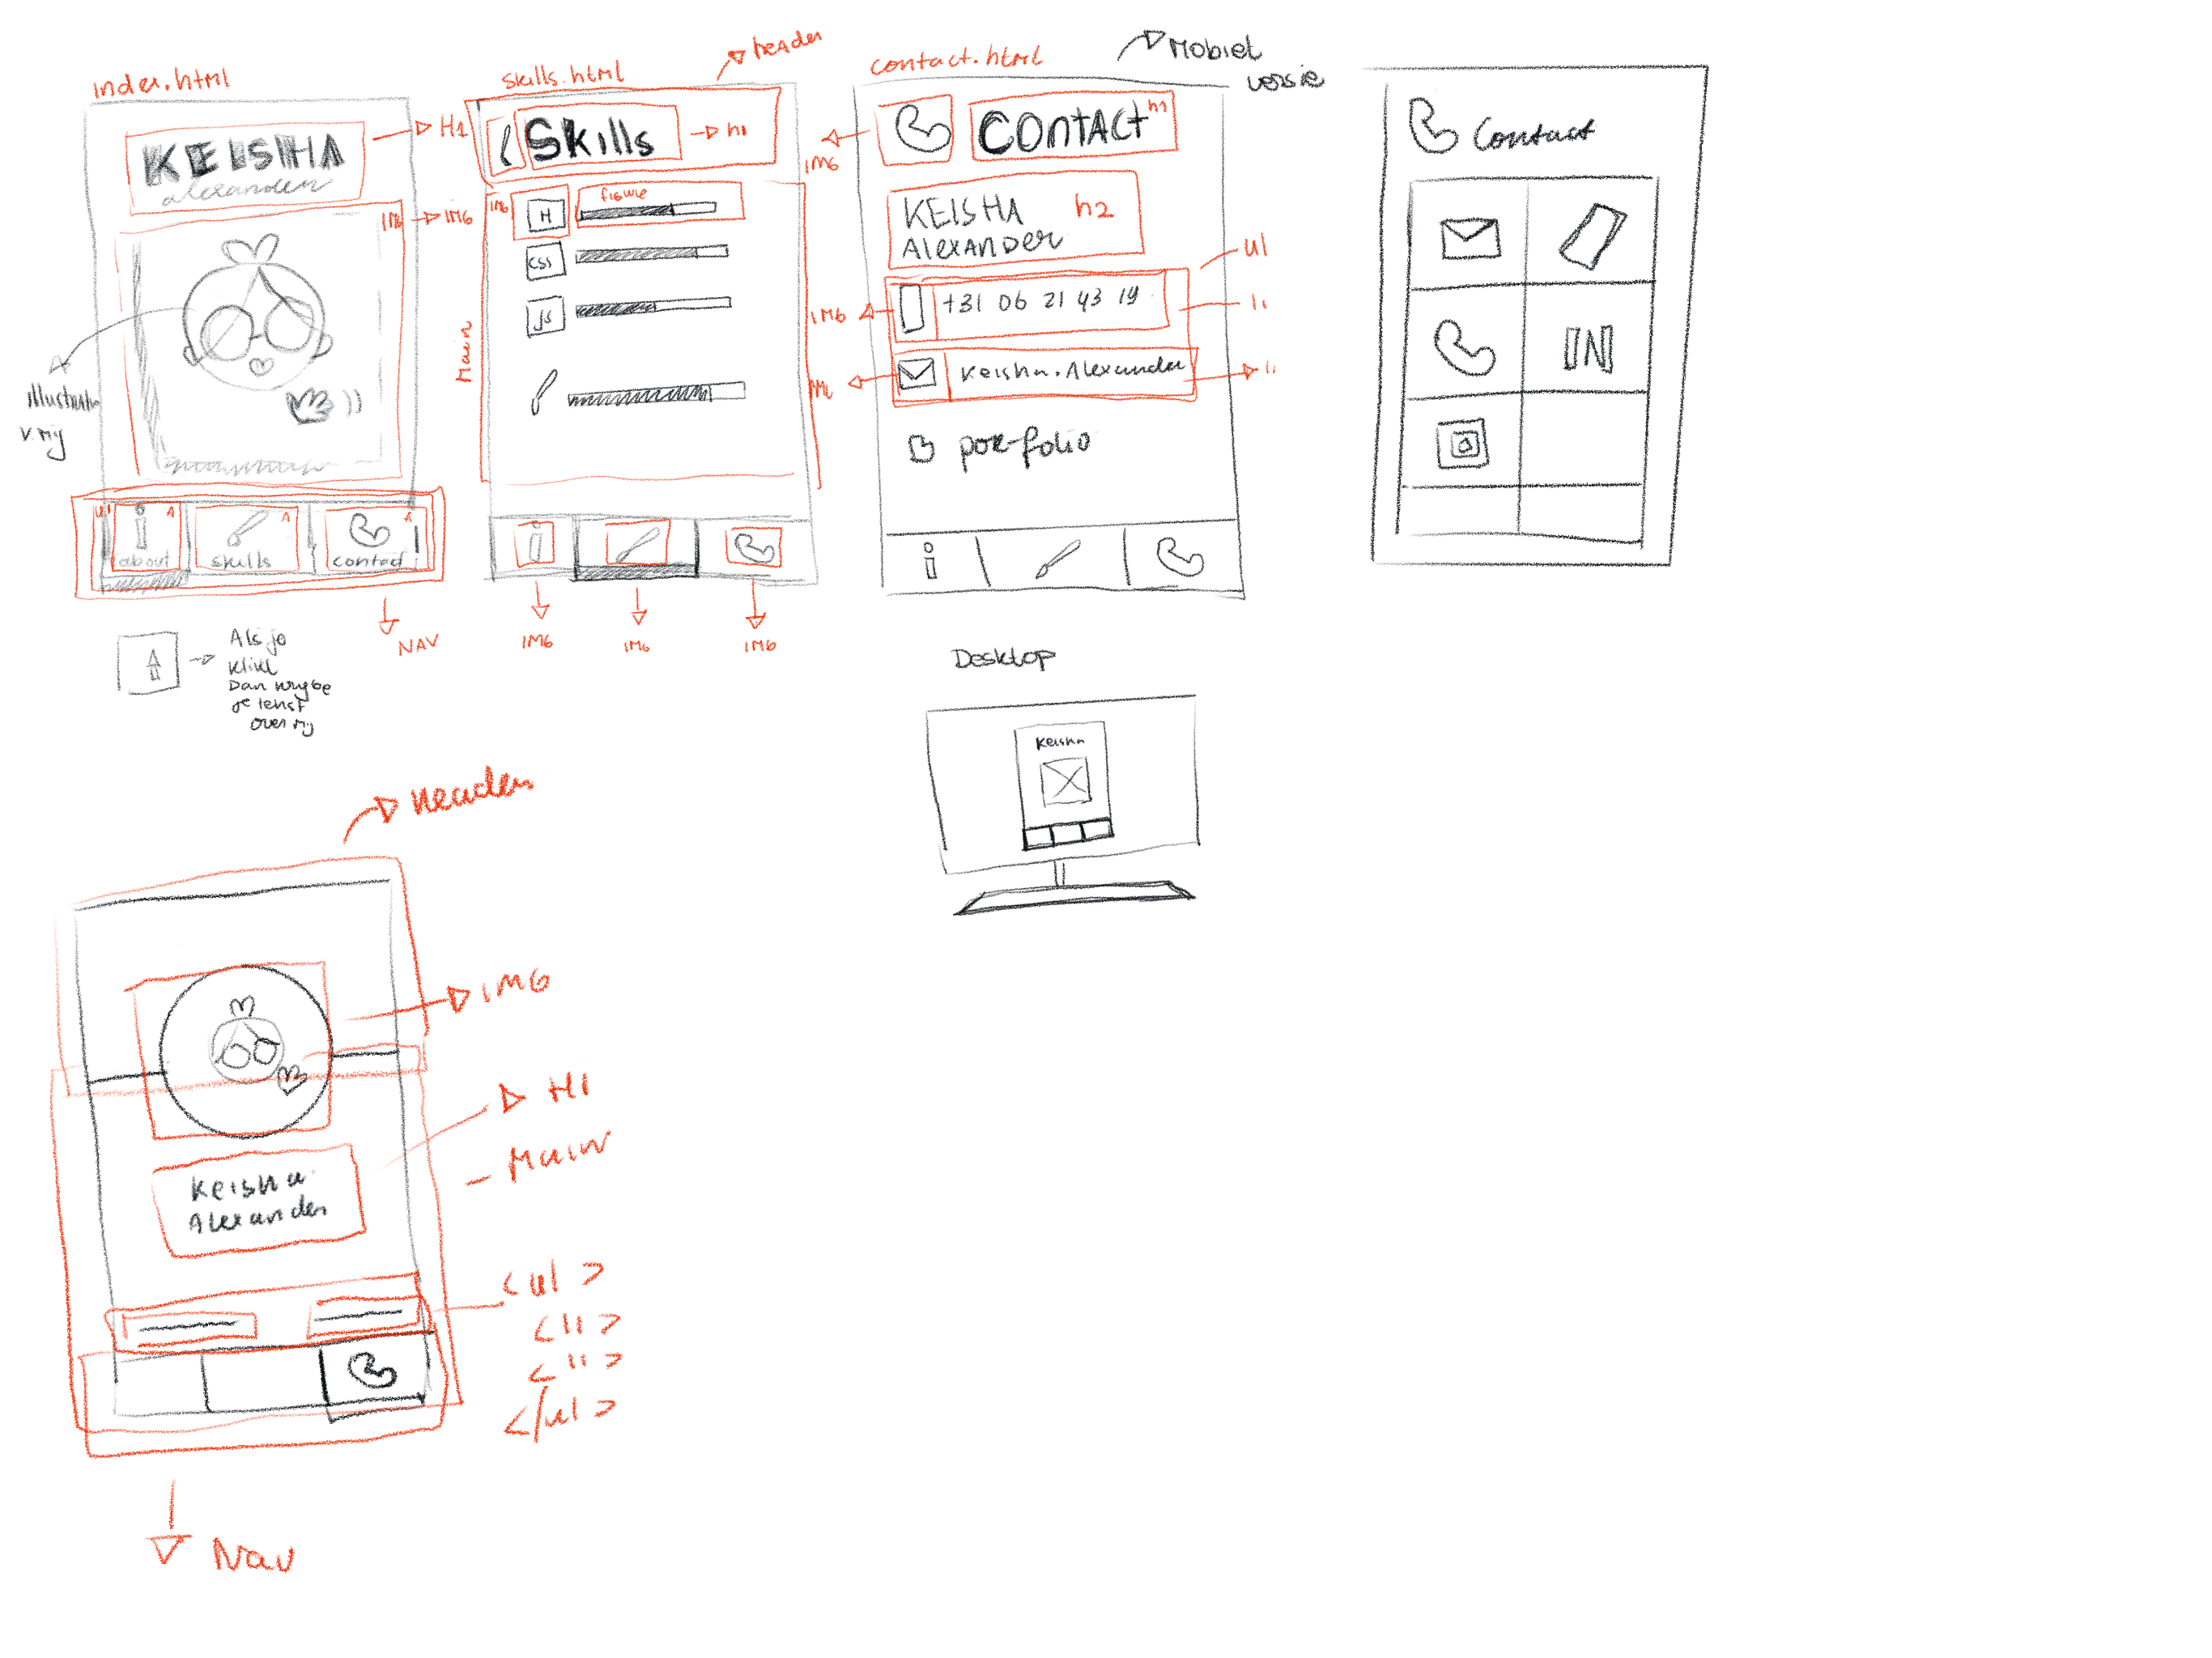 index.html
KEISHA
alexander
H1
IMG
IMG
illustratie
v. mij
UI
A
A
A
about
skills
contact
NAV
Als je
klikt
Dan krijg je
je tekst
over mij
skills.html
header
Skills
h1
IMG
figure
H
CSS
JS
Main
IMG
IMG
IMG
contact.html
Mobiel
versie
IMG
CONTACT
h1
KEISHA
Alexander
h2
ul
IMG
+31 06 21 43 19
li
IMG
Keisha.Alexander
li
portfolio
Contact
IN
Desktop
Keisha
Header
IMG
H1
Main
Keisha
Alexander
<ul>
<li>
<li>
</ul>
Nav